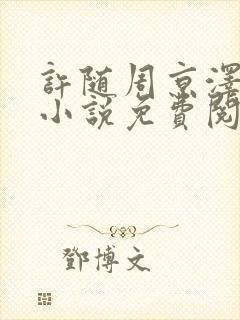 許随周京澤
小說免費閱
鄧博文